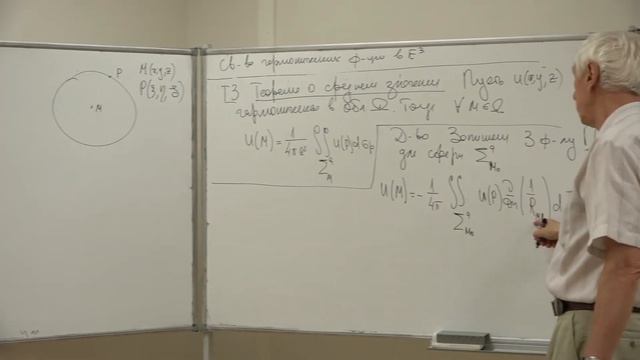 P
M(x,y,z)
P(ξ,η,ζ)
M
Св-ва гармонических ф-ций в E³
T3 Теорема о среднем значении Пусть u(x,y,z)
гармоническая в обл Ω. Тогда ∀ M∈Ω
U(M) = 1/4πa² ∬ U(P)dσp
Д-во Запишем 3 ф-лу !
для сферы Σ^a_{M₀}
U(M) = - 1/4π ∬_{Σ^a_{M₀}} U(P) ∂/∂n (1/R) d